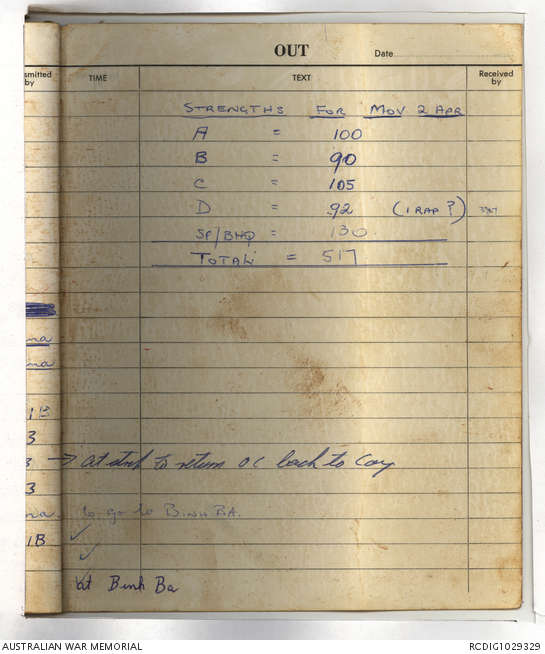 OUT
Date
smitted by
TIME
TEXT
Received by
STRENGTHS FOR MOV 2 APR
A = 100
B = 90
C = 105
D = 92 (1 RAP?)
SP/BHQ = 130
TOTAL = 517
na
na
1B
3
3 → at to return OC back to Coy
3
na. to go to BINH BA.
1B ✓
✓
at Binh Ba
AUSTRALIAN WAR MEMORIAL
RCDIG1029329